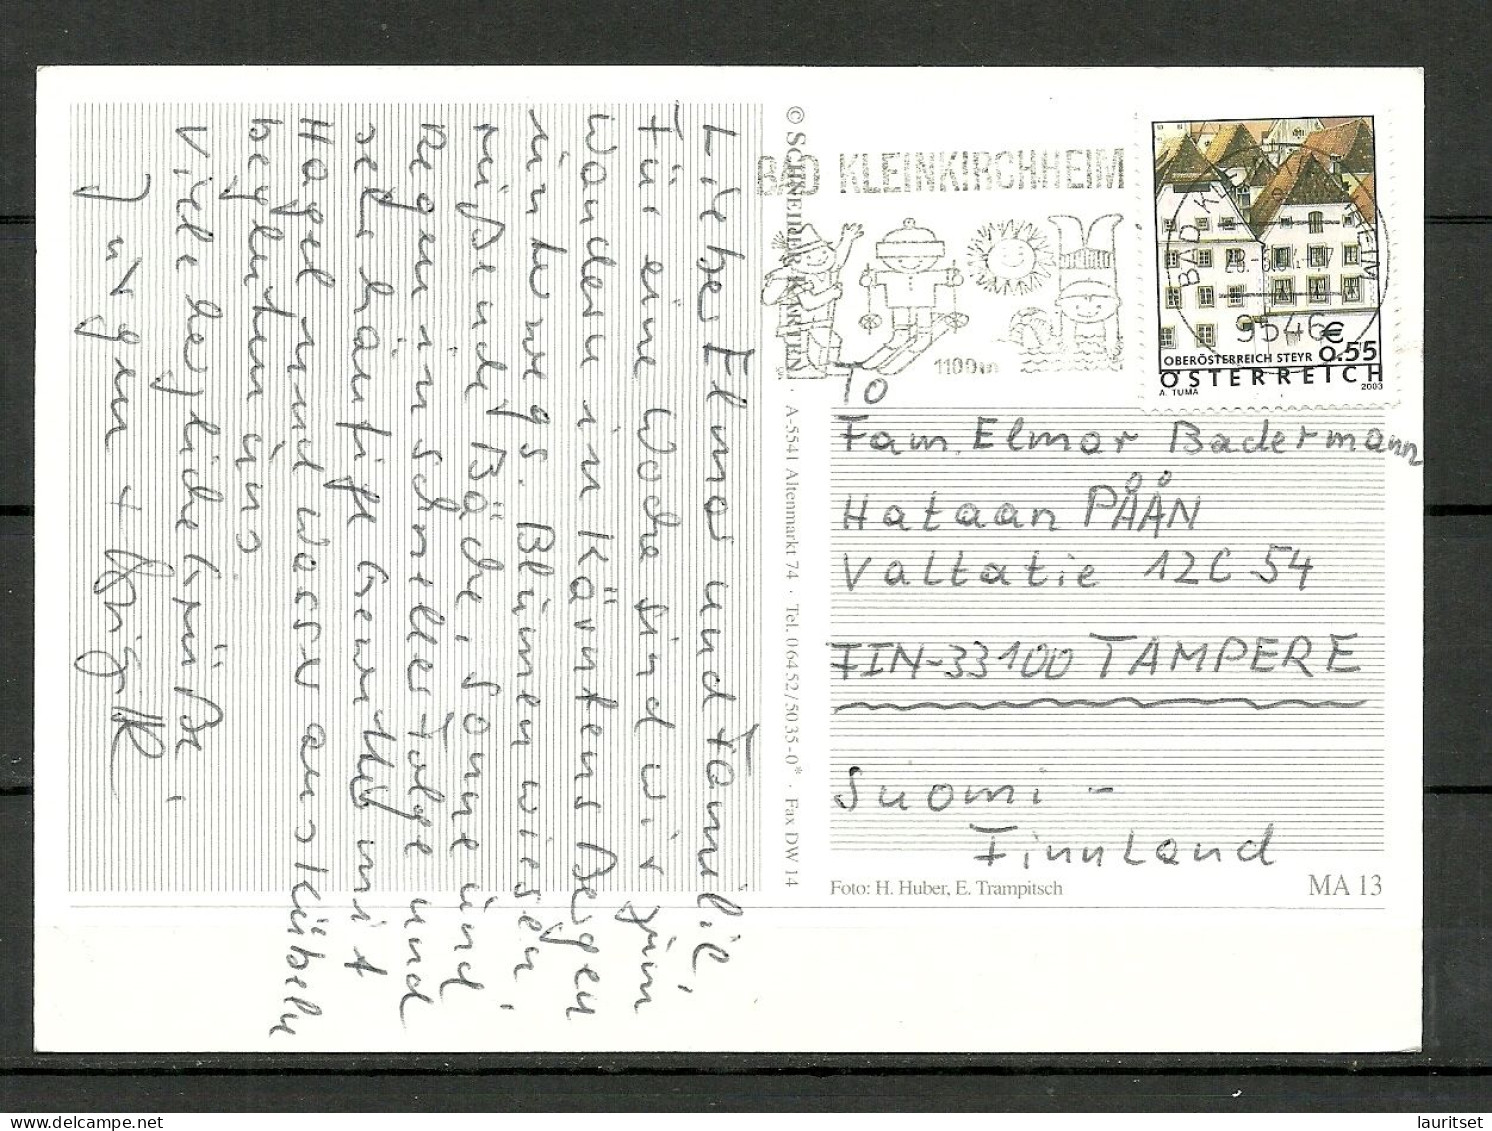 Lieber Elmar und Familie,
Für eine Woche sind wir zum
Wandern in Kärntens Bergen
unterwegs. Blumenwiesen,
reißende Bäche, Sonne und
Regen in schneller Folge und
sehr häufig Gewitter mit
Hagel und Wasser aus Kübeln
begleiten uns.
Viele herzliche Grüße,
Jürgen +
© SCHREIBER KARTEN · A-5541 Altenmarkt 74 · Tel. 0 64 52 / 50 35 - 0* · Fax DW 14
BAD KLEINKIRCHHEIM
1100m
BAD KLEINKIRCHHEIM
9546
€ 0.55
OBERÖSTERREICH STEYR
ÖSTERREICH
A. TUMA 2003
To
Fam. Elmar Badermann
Hataan PÄÄN
Valtatie 12C 54
FIN-33100 TAMPERE
Suomi -
Finnland
Foto: H. Huber, E. Trampitsch
MA 13
lauritset